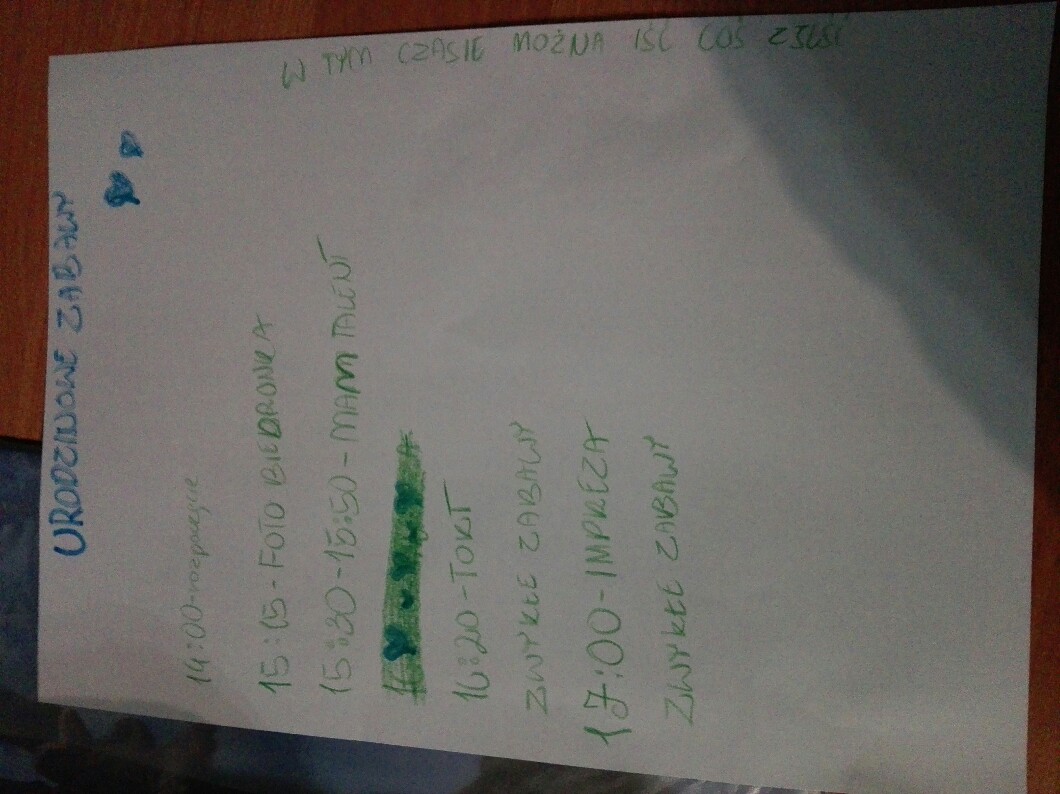 URODZINOWE ZABAWY
14:00-rozpoczęcie
15:15-FOTO BIEDRONKA
15:30-15:50-MAM TALENT
16:20-TORT
ZWYKŁE ZABAWY
17:00-IMPREZA
ZWYKŁE ZABAWY
W TYM CZASIE MOŻNA IŚĆ COŚ ZJEŚĆ